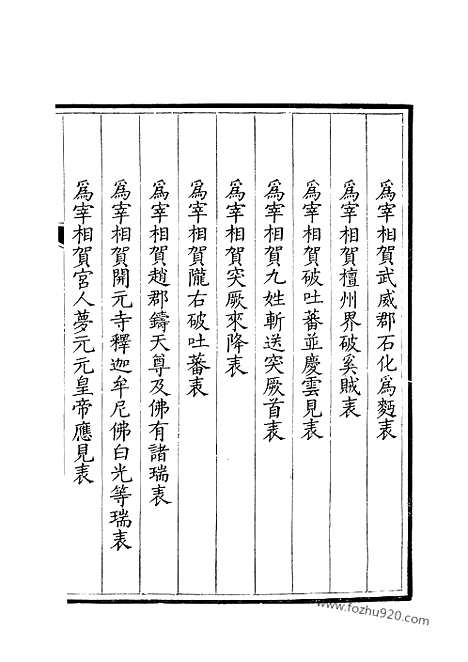 為宰相賀武威郡石化為麫表
為宰相賀檀州界破奚賊表
為宰相賀破吐蕃並慶雲見表
為宰相賀九姓斬送突厥首表
為宰相賀突厥來降表
為宰相賀隴右破吐蕃表
為宰相賀趙郡鑄天尊及佛有諸瑞表
為宰相賀開元寺釋迦牟尼佛白光等瑞表
為宰相賀宮人夢元元皇帝應見表
www.fozhu920.com